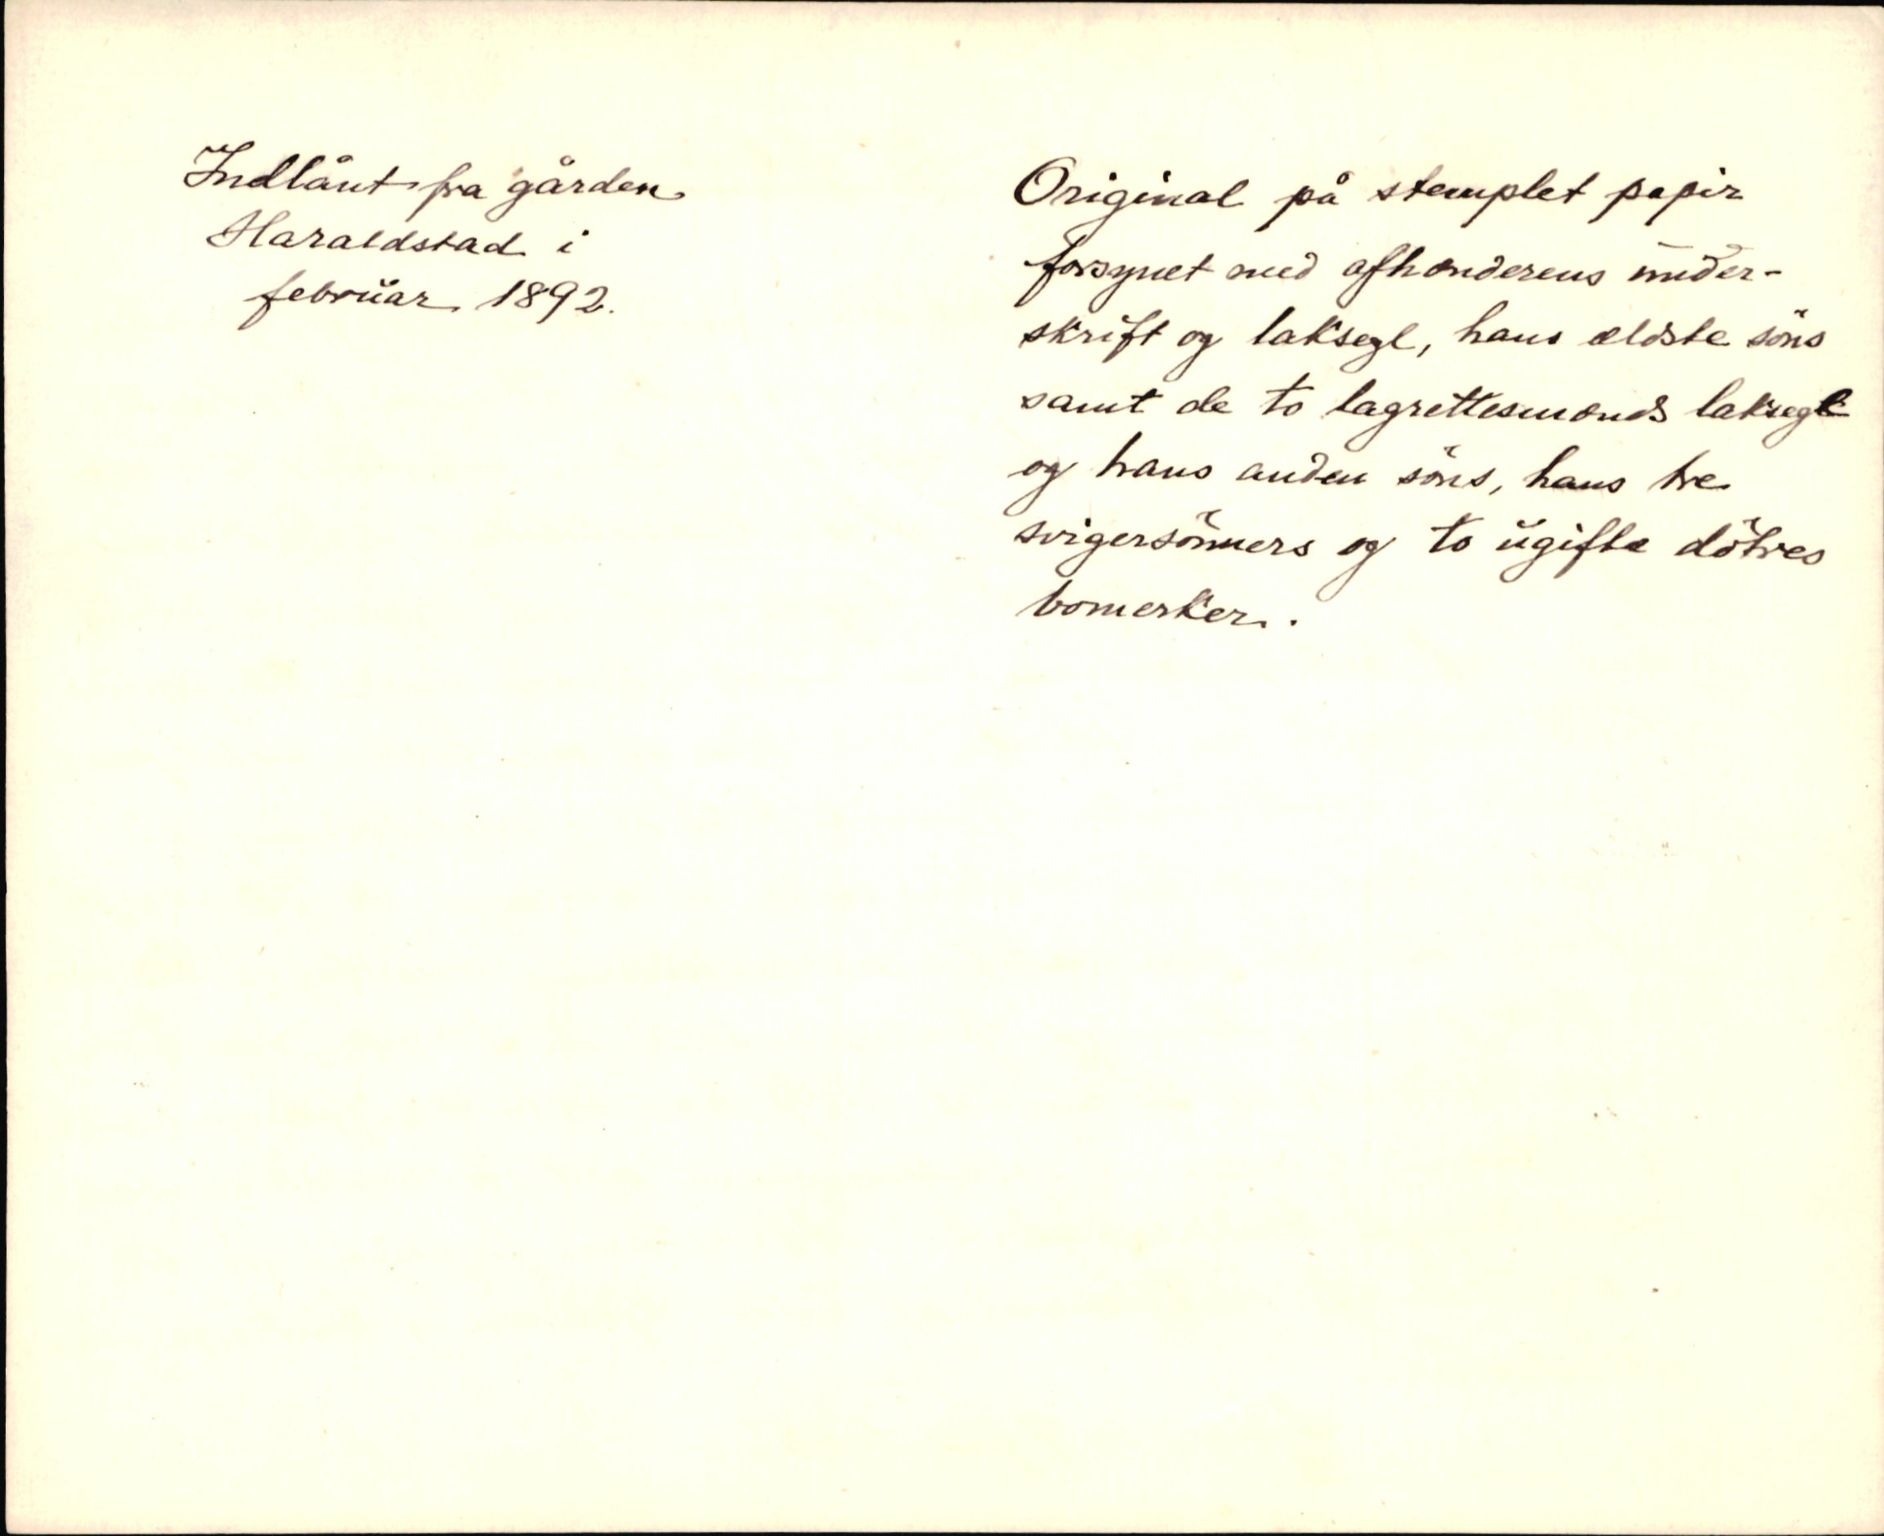 Indlånt fra gården
Haraldstad i
februar 1892.
Original på stemplet papir
forsynet med afhænderens under-
skrift og laksegl, hans ældste söns
samt de to lagrettesmænds laksegl
og hans anden söns, hans tre
svigersönners og to ugifte dötres
bomerker.